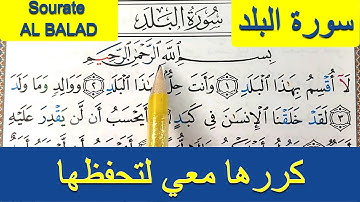 Sourate
AL BALAD
سورة البلد
سُورَةُ البَلَدِ
بِسْمِ ٱللَّهِ ٱلرَّحْمَٰنِ ٱلرَّحِيمِ
لَا أُقْسِمُ بِهَٰذَا ٱلْبَلَدِ ١ وَأَنتَ حِلٌّ بِهَٰذَا ٱلْبَلَدِ ٢ وَوَالِدٍ وَمَا وَلَدَ
٣ لَقَدْ خَلَقْنَا ٱلْإِنسَٰنَ فِي كَبَدٍ ٤ أَيَحْسَبُ أَن لَّن يَقْدِرَ عَلَيْهِ
كررها معي لتحفظها